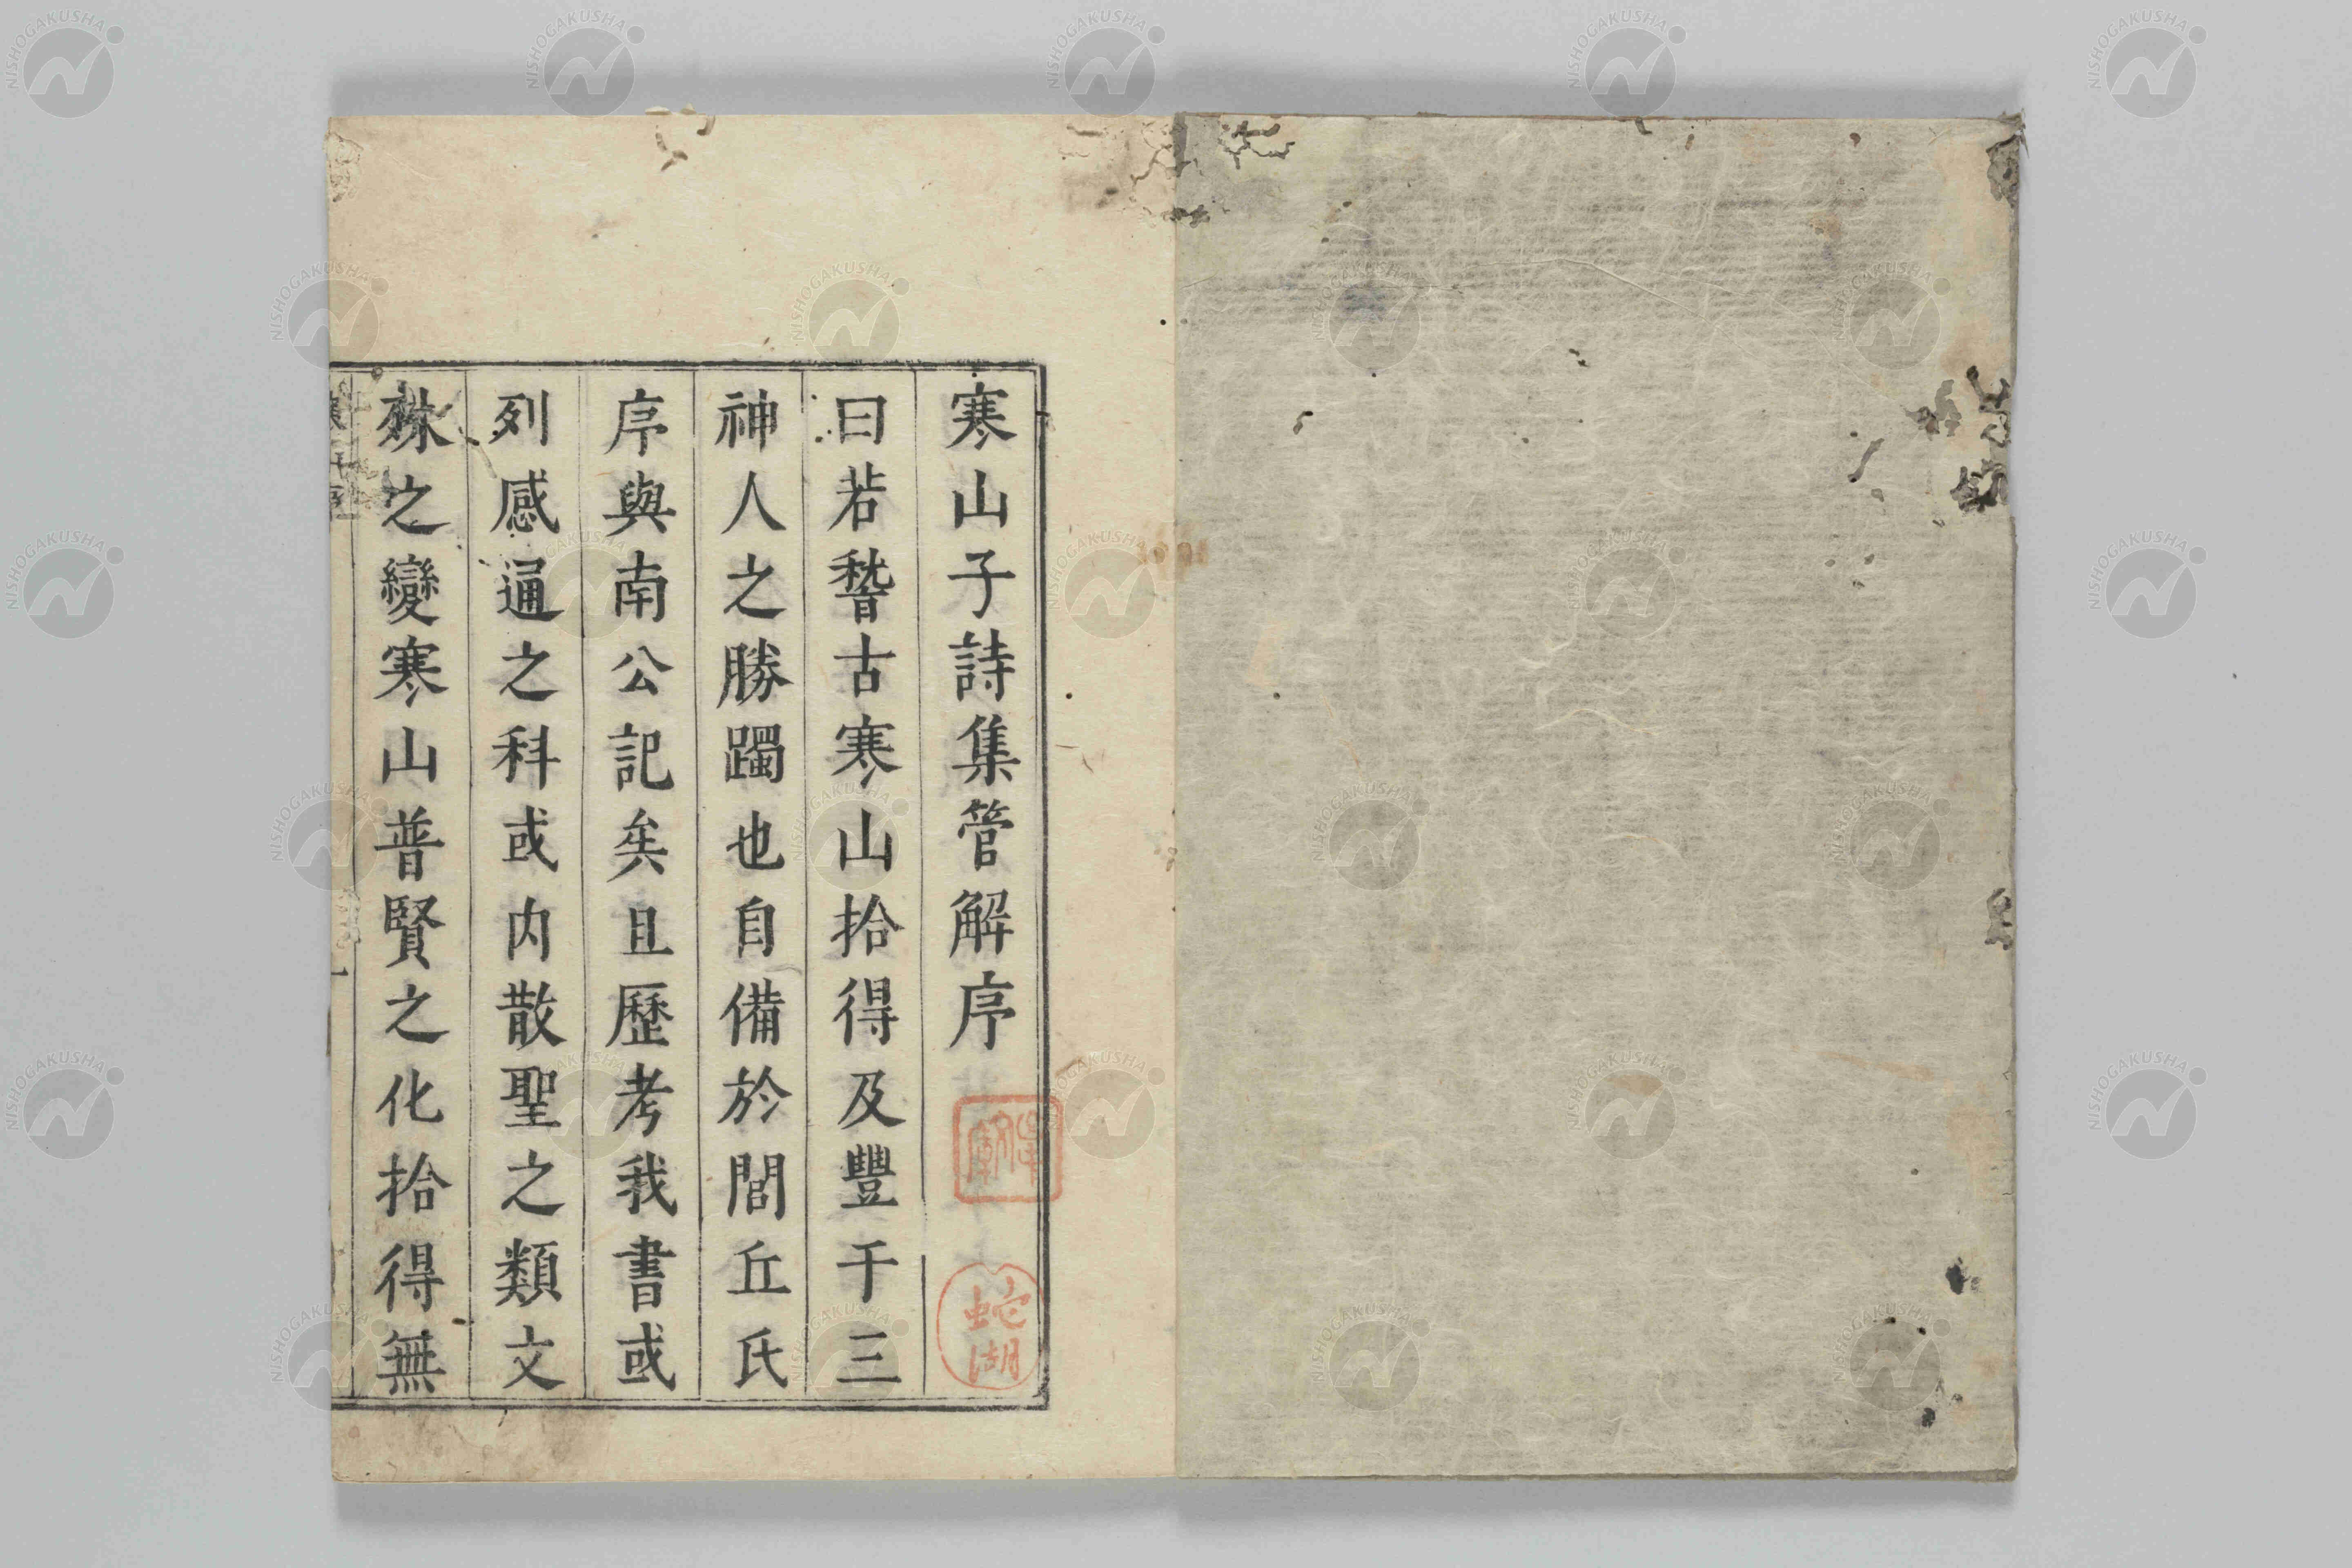 寒山子詩集管解序
曰若稽古寒山拾得及豐干三
神人之勝躅也自備於閭丘氏
序與南公記矣且歷考我書或
列感通之科或内散聖之類文
殊之變寒山普賢之化拾得無
蛇湖
NISHOGAKUSHA